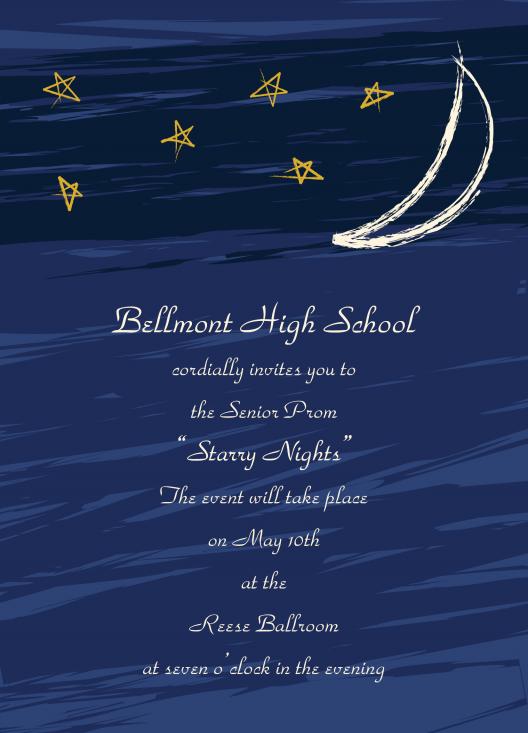 Bellmont High School
cordially invites you to
the Senior Prom
“Starry Nights”
The event will take place
on May 10th
at the
Reese Ballroom
at seven o’clock in the evening